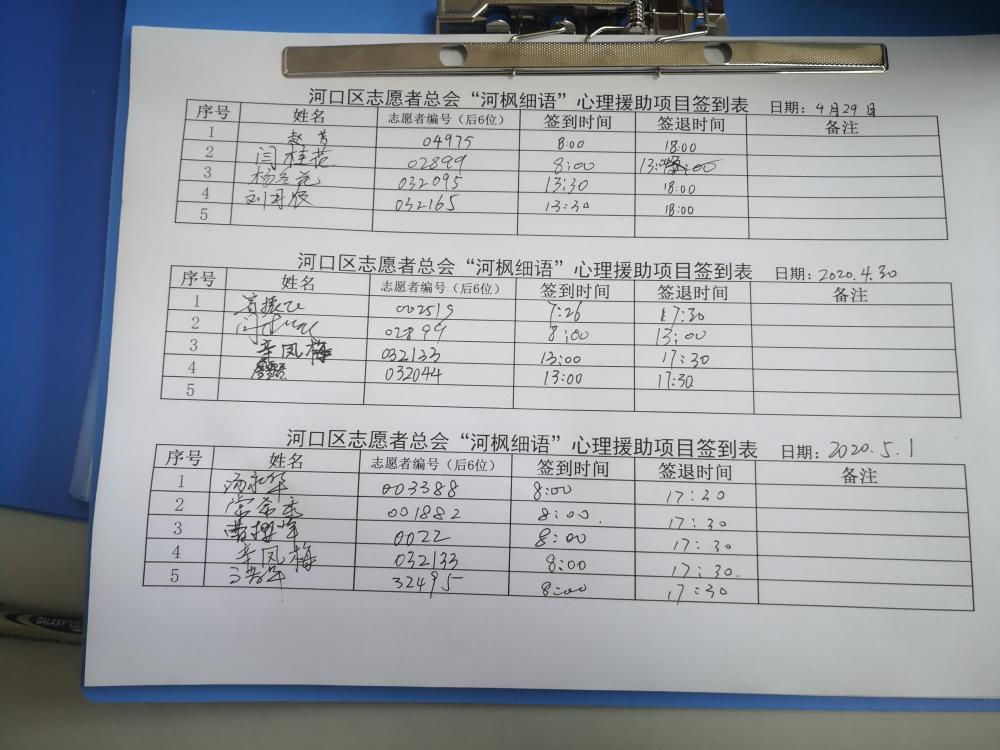 河口区志愿者总会“河枫细语”心理援助项目签到表 日期：4月29日
序号 姓名 志愿者编号（后6位） 签到时间 签退时间 备注
1 赵芳 04975 8:00 18:00
2 闫桂花 02899 8:00 13:00
3 杨冬花 032095 13:30 18:00
4 032165 13:30 18:00
5
河口区志愿者总会“河枫细语”心理援助项目签到表 日期：2020.4.30
序号 姓名 志愿者编号（后6位） 签到时间 签退时间 备注
1 002519 7:26 17:30
2 02899 8:00 13:00
3 辛凤梅 032133 13:00 17:30
4 032044 13:00 17:30
5
河口区志愿者总会“河枫细语”心理援助项目签到表 日期：2020.5.1
序号 姓名 志愿者编号（后6位） 签到时间 签退时间 备注
1 003388 8:00 17:20
2 001882 8:00. 17:30
3 0022 8:00 17:30
4 辛凤梅 032133 8:00 17:30.
5 32495 8:00 17:30
GALAXY